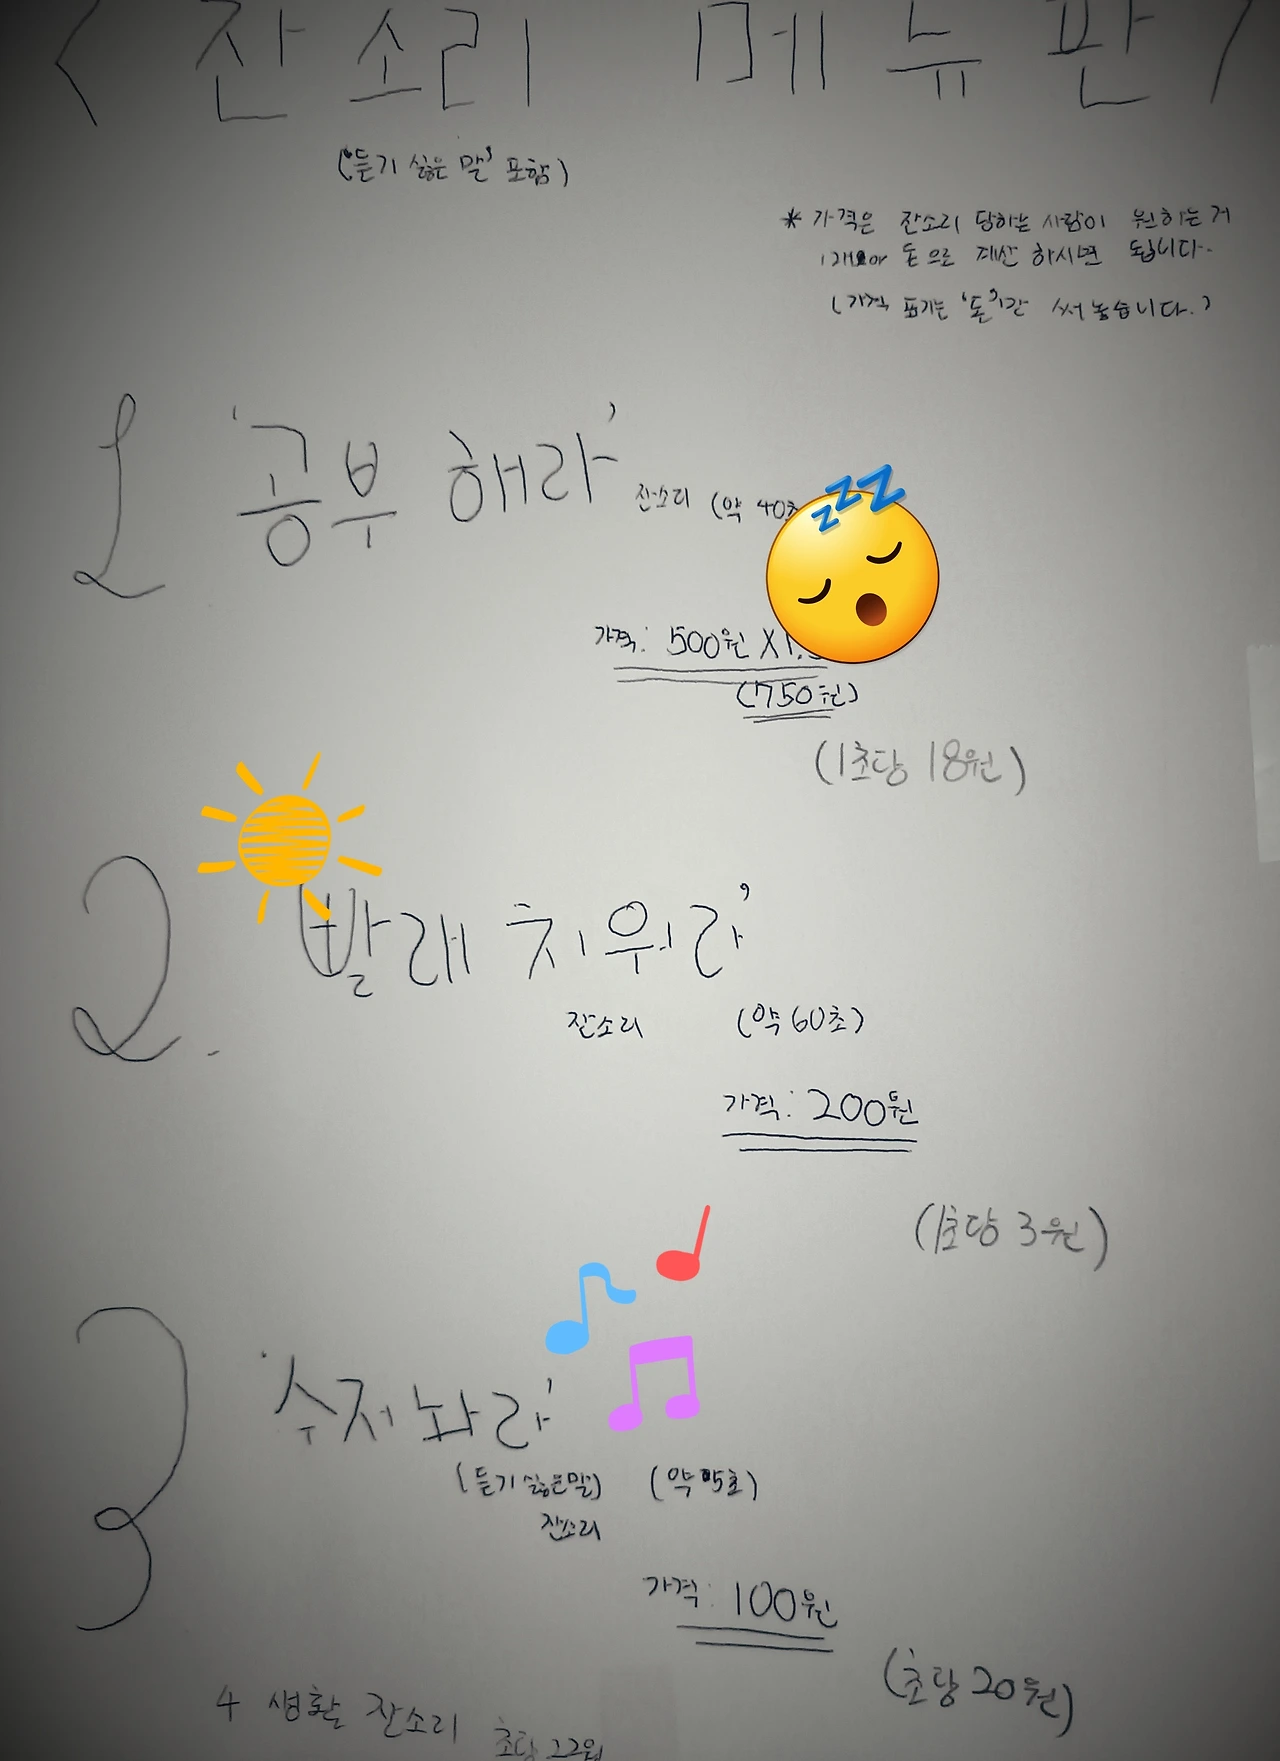 <잔소리 메뉴판>
('듣기 싫은 말' 포함)
* 가격은 잔소리 당하는 사람이 원하는 거
1개 or 돈으로 계산 하시면 됩니다.
(가격 표기는 '돈'만 써 놓습니다.)
1. '공부 해라' 잔소리 (약 40초
가격: 500원 X1.5
(750원)
(1초당 18원)
2. 빨래 치워라'
잔소리 (약 60초)
가격: 200원
(1초당 3원)
3 '수저 놔라'
(듣기 싫은말) (약 5초)
잔소리
가격: 100원
(초당 20원)
4 생활 잔소리 초당 22원